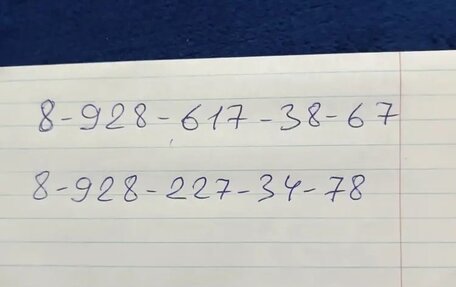 8-928-617-38-67
8-928-227-34-78